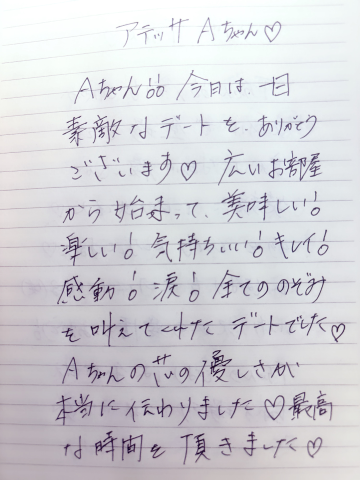 アテッサ Aちゃん♡
Aちゃん!! 今日は、一日
素敵なデートを、ありがとう
ございます♡ 広いお部屋
から始まって、美味しい!
楽しい! 気持ちいい! キレイ!
感動! 涙! 全てののぞみ
を叶えてくれたデートでした♡
Aちゃんの芯の優しさが
本当に伝わりました♡最高
な時間を頂きました♡